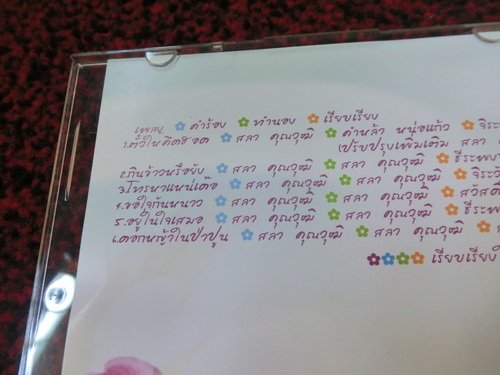 เพลง คำร้อง ทำนอง เรียบเรียง
1.ตั๋วให้คิดฮอด สลา คุณวุฒิ คำหล้า หน่อแก้ว จิระ
(ปรับปรุงเพิ่มเติม สลา
2.กินข้าวหรือยัง สลา คุณวุฒิ สลา คุณวุฒิ ธีระพง
3.โทรหาแหน่เด้อ สลา คุณวุฒิ สลา คุณวุฒิ จิระวั
4.ขอใจกันหนาว สลา คุณวุฒิ สลา คุณวุฒิ สวัสดิ
5.อยู่ในใจเสมอ สลา คุณวุฒิ สลา คุณวุฒิ ธีระพง
6.ดอกหญ้าในป่าปูน สลา คุณวุฒิ สลา คุณวุฒิ
เรียบเรียงใ